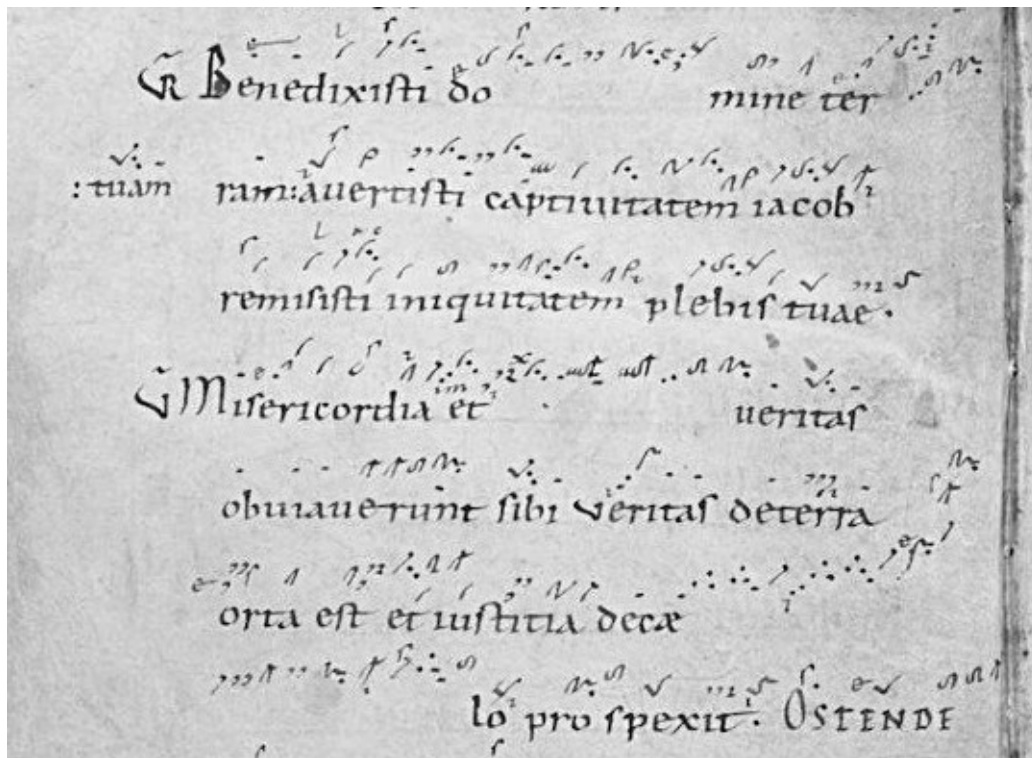 GR Benedixisti do mine ter
: tuam ram: avertisti captivitatem iacob
remisisti iniquitatem plebis tuae.
G Misericordia et veritas
obviaverunt sibi veritas deterra
orta est et iustitia decæ
lo pro spexit. OSTENDE